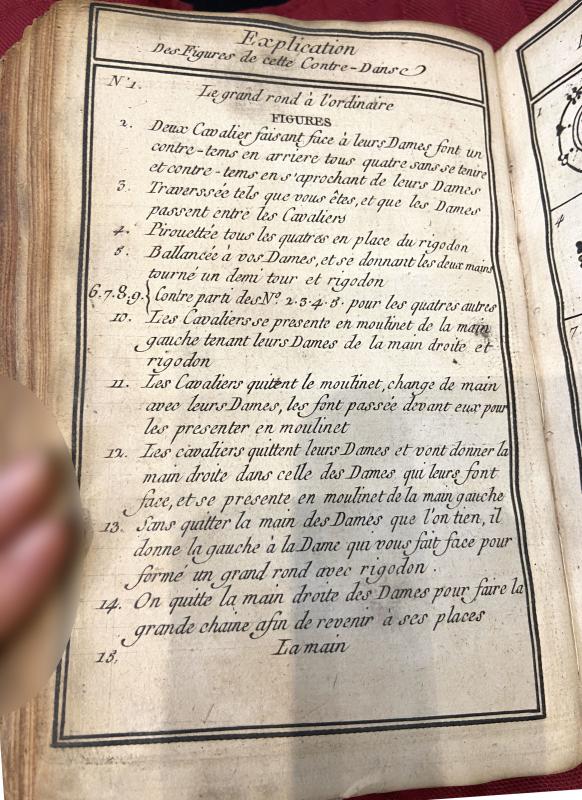 Explication
Des Figures de cette Contre-Danse
N.º 1. Le grand rond à l'ordinaire
FIGURES
2. Deux Cavalier faisant face à leurs Dames font un
contre-tems en arriere tous quatre sans se tenire
et contre-tems en s'aprochant de leurs Dames
3. Traverssée tels que vous êtes, et que les Dames
passent entre les Cavaliers
4. Pirouettée tous les quatres en place du rigodon
5. Ballancée à vos Dames, et se donnant les deux mains
tourné un demi tour et rigodon
6.7.8.9. { Contre parti des Nº. 2.3.4.5. pour les quatres autres
10. Les Cavaliers se presente en moulinet de la main
gauche tenant leurs Dames de la main droite et
rigodon
11. Les Cavaliers quitent le moulinet, change de main
avec leurs Dames, les font passée devant eux pour
les presenter en moulinet
12. Les cavaliers quittent leurs Dames et vont donner la
main droite dans celle des Dames qui leurs font
face, et se presente en moulinet de la main gauche
13. Sans quitter la main des Dames que l'on tien, il
donne la gauche à la Dame qui vous fait face pour
formé un grand rond avec rigodon.
14. On quitte la main droite des Dames pour faire la
grande chaine afin de revenir à ses places
15. La main
1
4
7